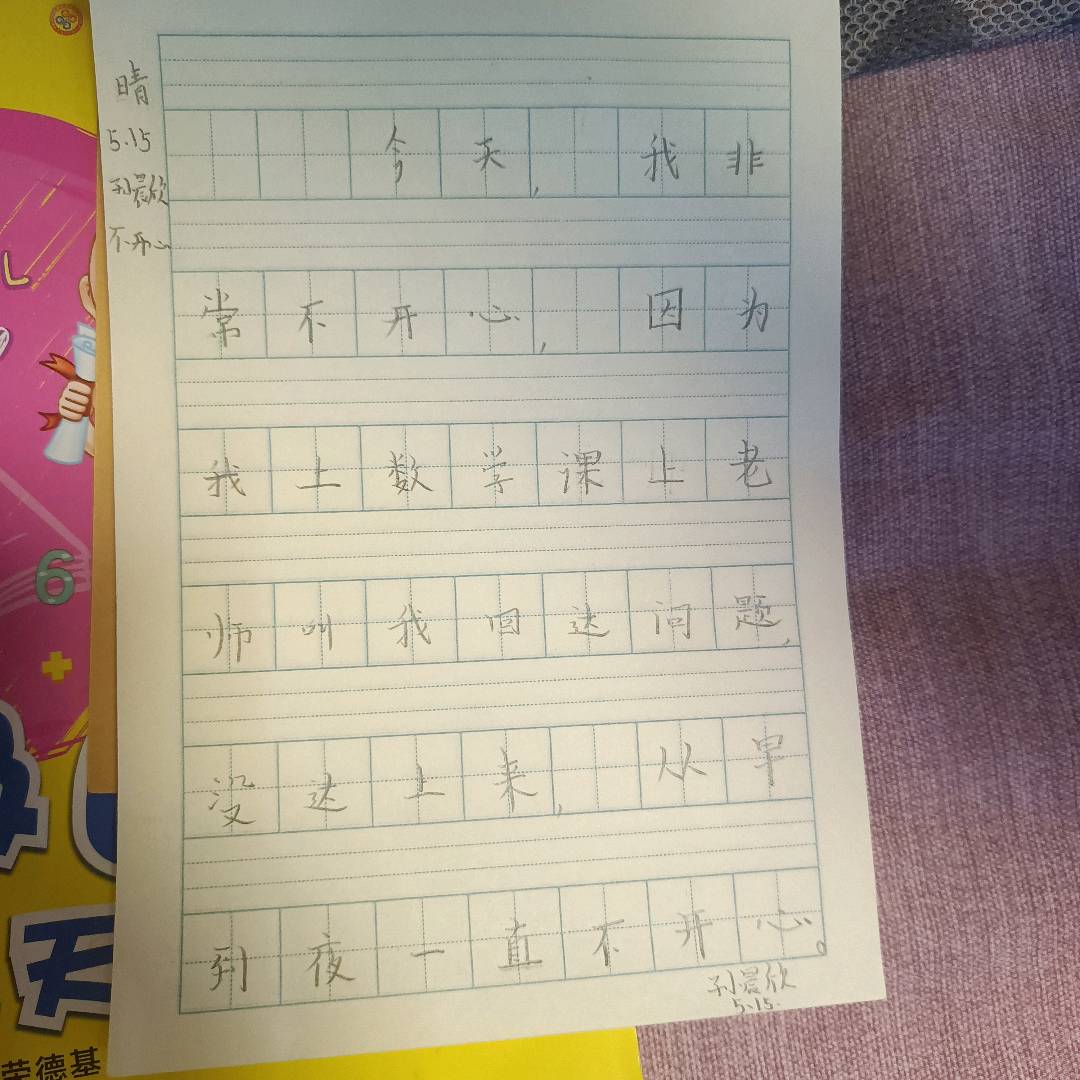 晴
5.15
孙晨欣
不开心
今天,我非
常不开心,因为
我上数学课上老
师叫我回达问题,
没达上来,从早
到夜一直不开心。
孙晨欣
5.15.
6
荣德基